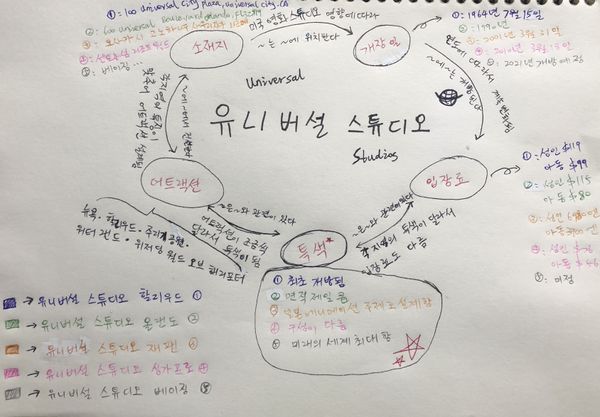 ①: 100 Universal City Plaza, Universal City, CA
②: 6000 Universal
③: 오사카시
⑤: 베이징 ...
소재지
미국 영화 스튜디오 영향에 따라
~는 ~에 위치한다
개장일
①: 1964년 7월 15일
②: 1990년
③: 2001년 3월 31일
④: 2010년 3월 18일
⑤: 2021년 개방 예정
연도
~에 ~는 개방된다
계속 변화됨
Universal
유니버설 스튜디오
Studios
~에 ~에서 진행한다
각 지역의 특징이
맞추어 어트랙션 설계됨
어트랙션
뉴욕·할리우드·쥬라기공원·
워터 랜드·위저딩 월드 오브 해리포터
~은 ~와 관련이 있다
어트랙션이 조금씩
달라서 특색이 됨
특색*
~은 ~와 관련이 있다
각 지역의 특색이 달라서
입장료도 다름
입장료
①: 성인 $119
아동 $99
②: 성인 $115
아동 $80
③: 성인
④: 성인
아동 $
⑤: 미정
① 최초 개방됨
② 면적 제일 큼
③ 일본 애니메이션 주제로 설계함
④ 구성이 다름
⑤ 미래의 세계 최대함
→ 유니버설 스튜디오 할리우드 ①
→ 유니버설 스튜디오 올랜도 ②
→ 유니버설 스튜디오 재팬 ③
→ 유니버설 스튜디오 싱가포르 ④
→ 유니버설 스튜디오 베이징 ⑤